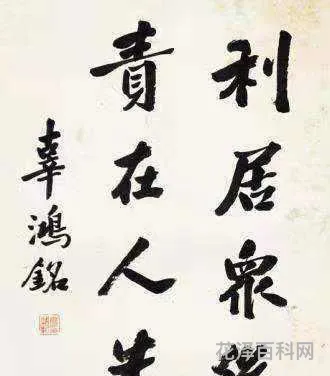 利居衆
責在人
辜鴻銘
花泽百科网